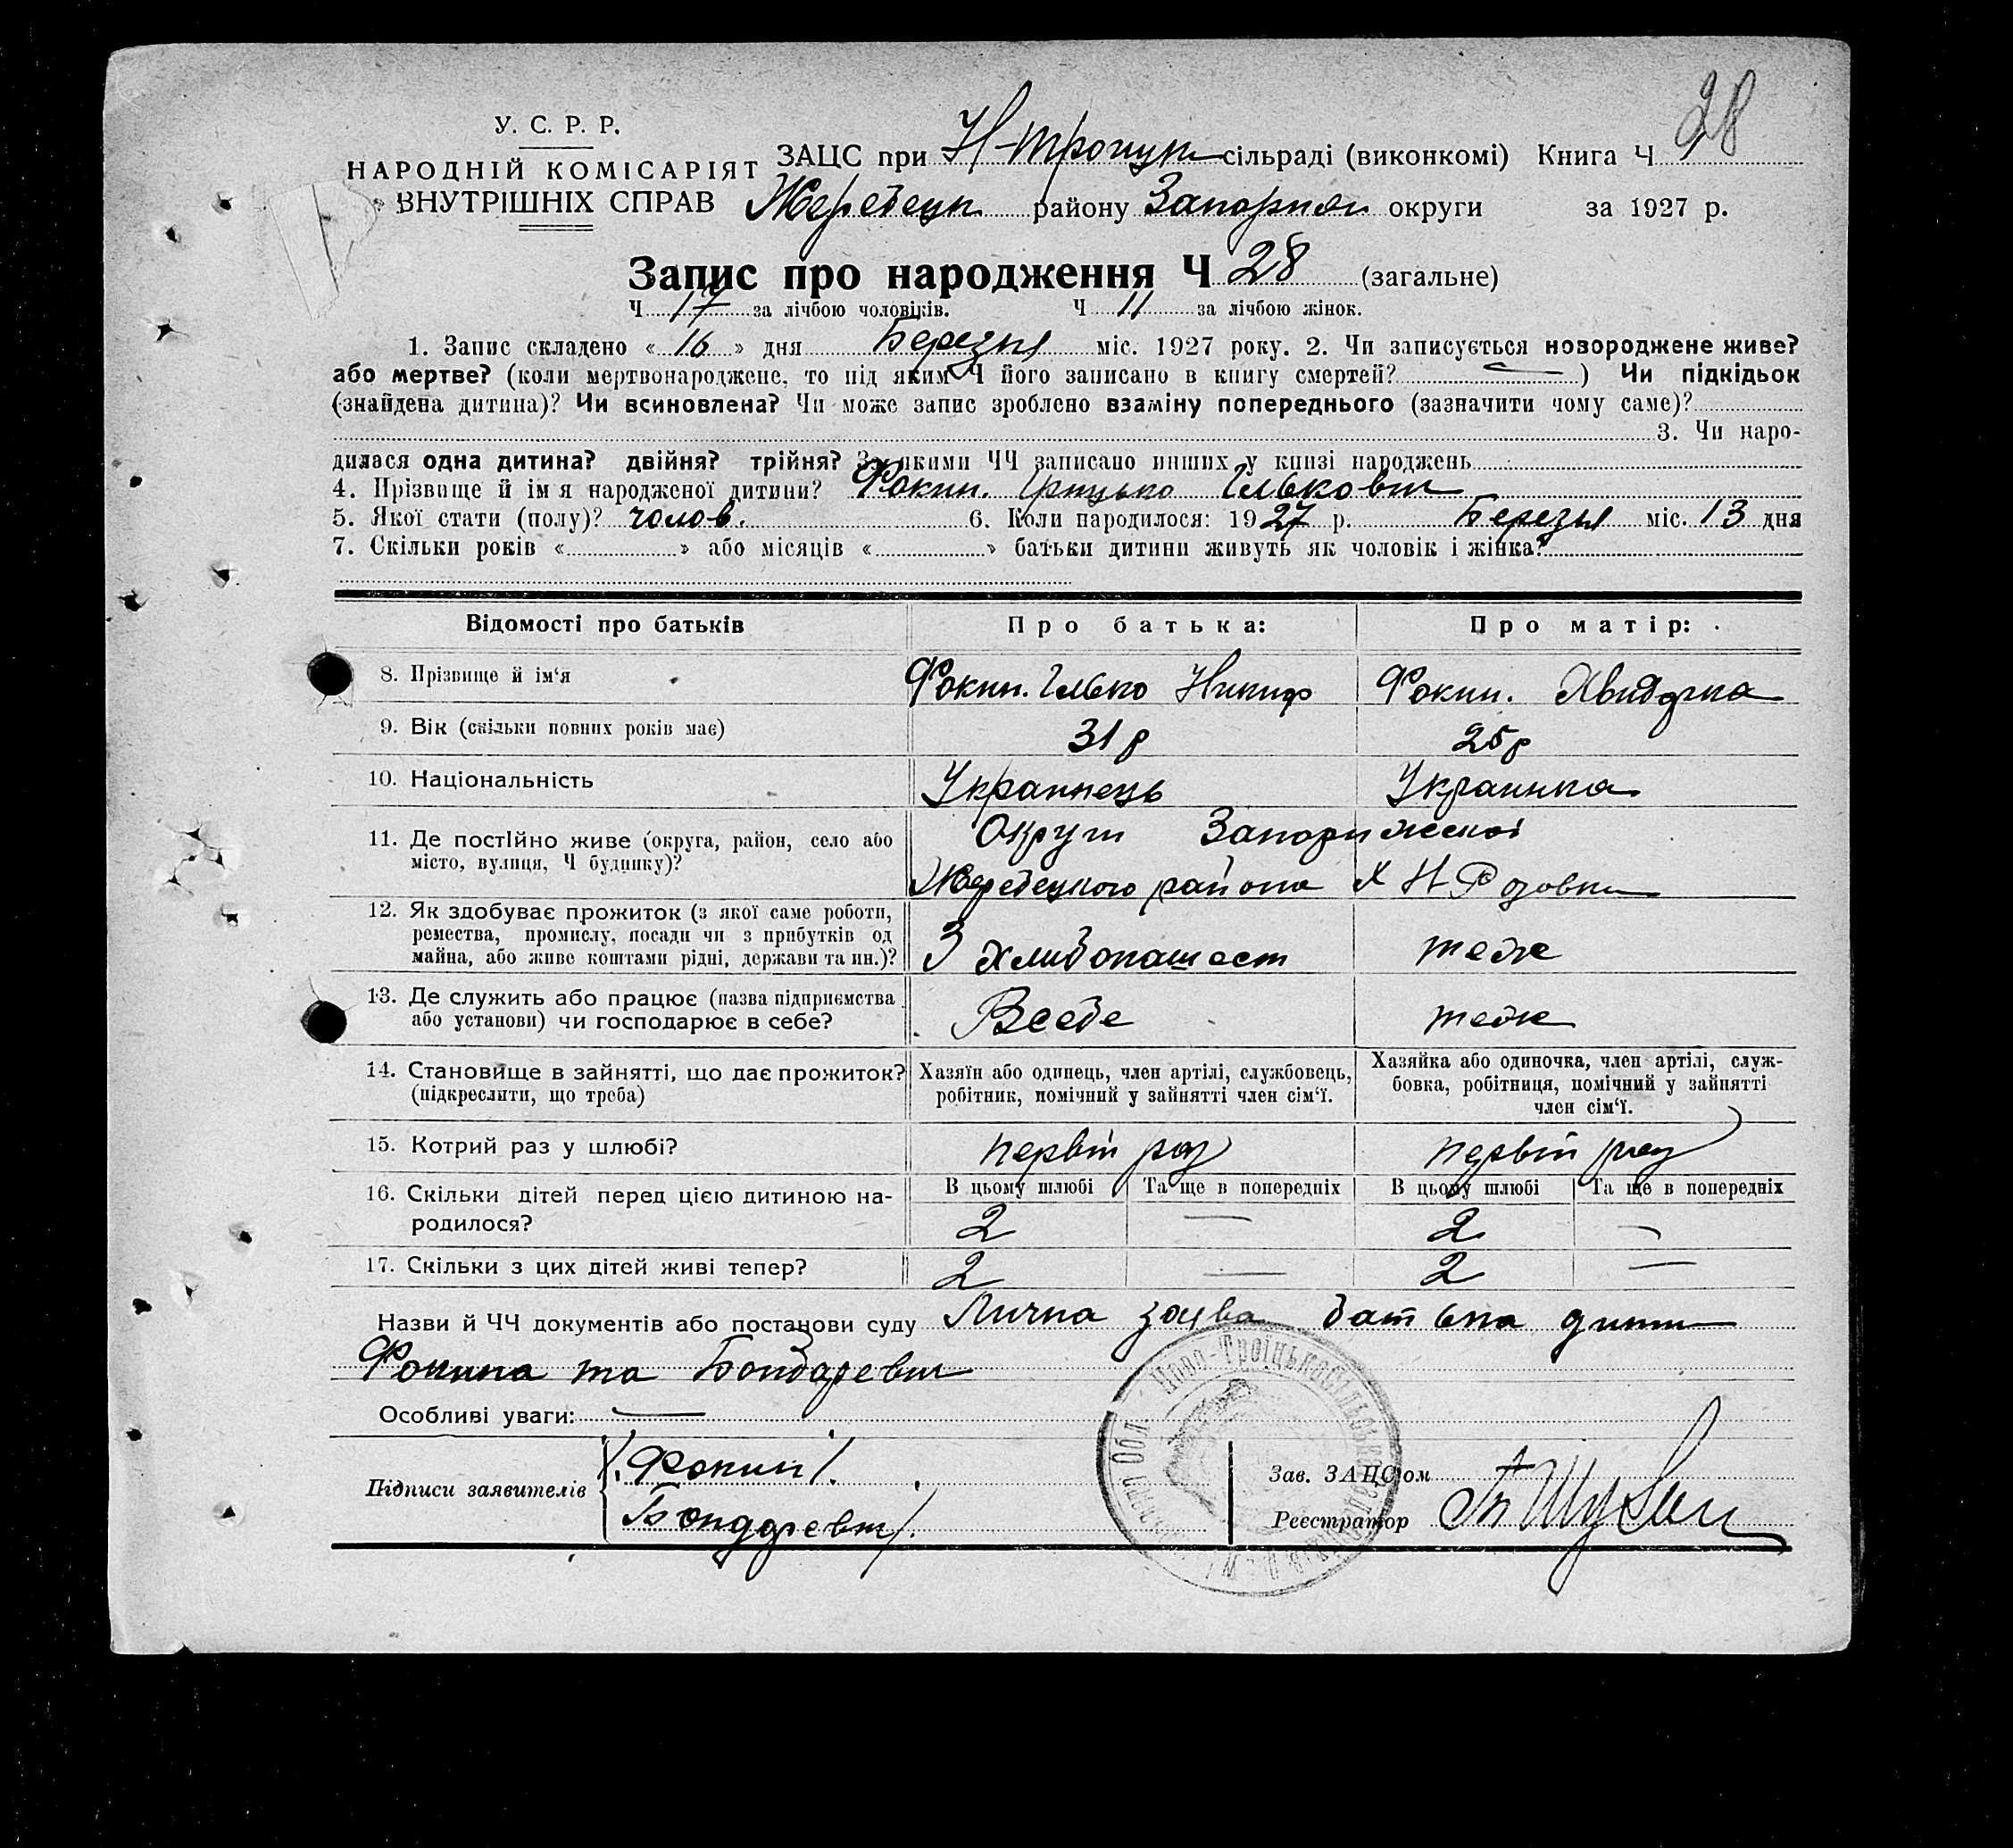 28
У. С. Р. Р.
НАРОДНІЙ КОМІСАРІЯТ
ВНУТРІШНІХ СПРАВ
ЗАЦС при Н-Троицк сільраді (виконкомі) Книга Ч
Жеребецк району Запориж округи за 1927 р.
Запис про народження Ч 28 (загальне)
Ч 17 за лічбою чоловіків. Ч 11 за лічбою жінок.
1. Запис складено « 16 » дня Березня міс. 1927 року. 2. Чи записується новороджене живе?
або мертве? (коли мертвонароджене, то під яким Ч його записано в книгу смертей? — ) Чи підкідьок
(знайдена дитина)? Чи всиновлена? Чи може запис зроблено взаміну попереднього (зазначити чому саме)?
3. Чи наро-
дилася одна дитина? двійня? трійня? За якими ЧЧ записано инших у книзі народжень
4. Прізвище й ім я народженої дитини? Фокин. Грицько Ількович
5. Якої стати (полу)? чолов. 6. Коли народилося: 1927 р. Березня міс. 13 дня
7. Скільки років « » або місяців « » батьки дитини живуть як чоловік і жінка?
Відомості про батьків Про батька: Про матір:
8. Прізвище й ім‘я Фокин. Ілько Никиф Фокин. Хвидорка
9. Вік (скільки повних років має) 31 р 25 р
10. Національність Украинець Украинка
11. Де постійно живе (округа, район, село або Округи Запорижскоі
місто, вулиця, Ч будинку)? Жеребецкого района Х Н Розовка
12. Як здобуває прожиток (з якої саме роботи,
ремества, промислу, посади чи з прибутків од
майна, або живе коштами рідні, держави та ин.)? З хлибопашест теж
13. Де служить або працює (назва підприємства
або установи) чи господарює в себе? Всебе теж
14. Становище в зайнятті, що дає прожиток? Хазяїн або одинець, член артілі, службовець, Хазяйка або одиночка, член артілі, служ-
(підкреслити, що треба) робітник, помічний у зайнятті член сім‘ї. бовка, робітниця, помічний у зайнятті
член сім‘ї.
15. Котрий раз у шлюбі? первій раз первій раз
16. Скільки дітей перед цією дитиною на- В цьому шлюбі Та ще в попередніх В цьому шлюбі Та ще в попередніх
родилося? 2 — 2 —
17. Скільки з цих дітей живі тепер? 2 — 2 —
Назви й ЧЧ документів або постанови суду Лична заява батька дити
Фокина та Бондаревич
Особливі уваги: —
Підписи заявителів /. Фокин /.
Бондаревич /.
Зав. ЗАЦС‘ом
Реєстратор
Ново-Троїцька Сільська Рада